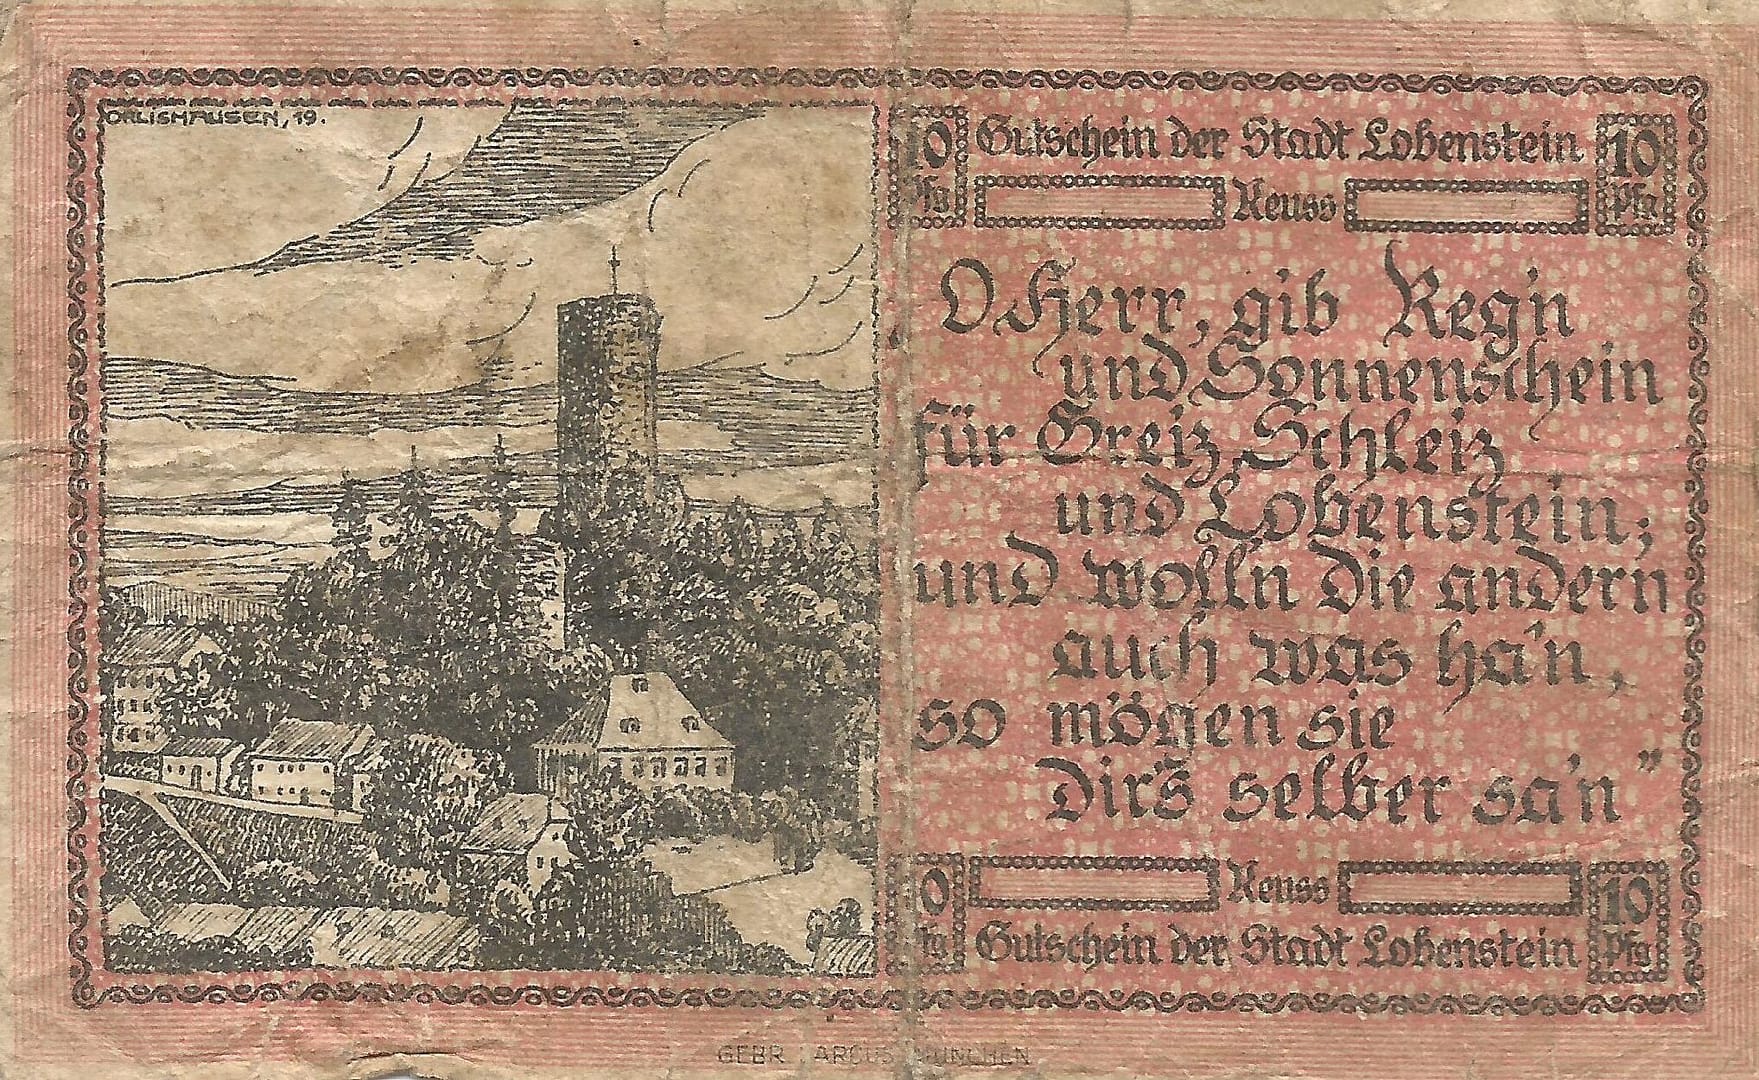 ORLISHAUSEN, 19.
10 Gutschein der Stadt Lobenstein 10
Pfg Reuss Pfg
O Herr, gib Reg'n
und Sonnenschein
für Greiz, Schleiz
und Lobenstein;
und woll'n die andern
auch was ha'n,
so mögen sie
Dir's selber sa'n"
10 Reuss 10
Pfg Gutschein der Stadt Lobenstein Pfg
GEBR. PARCUS MÜNCHEN